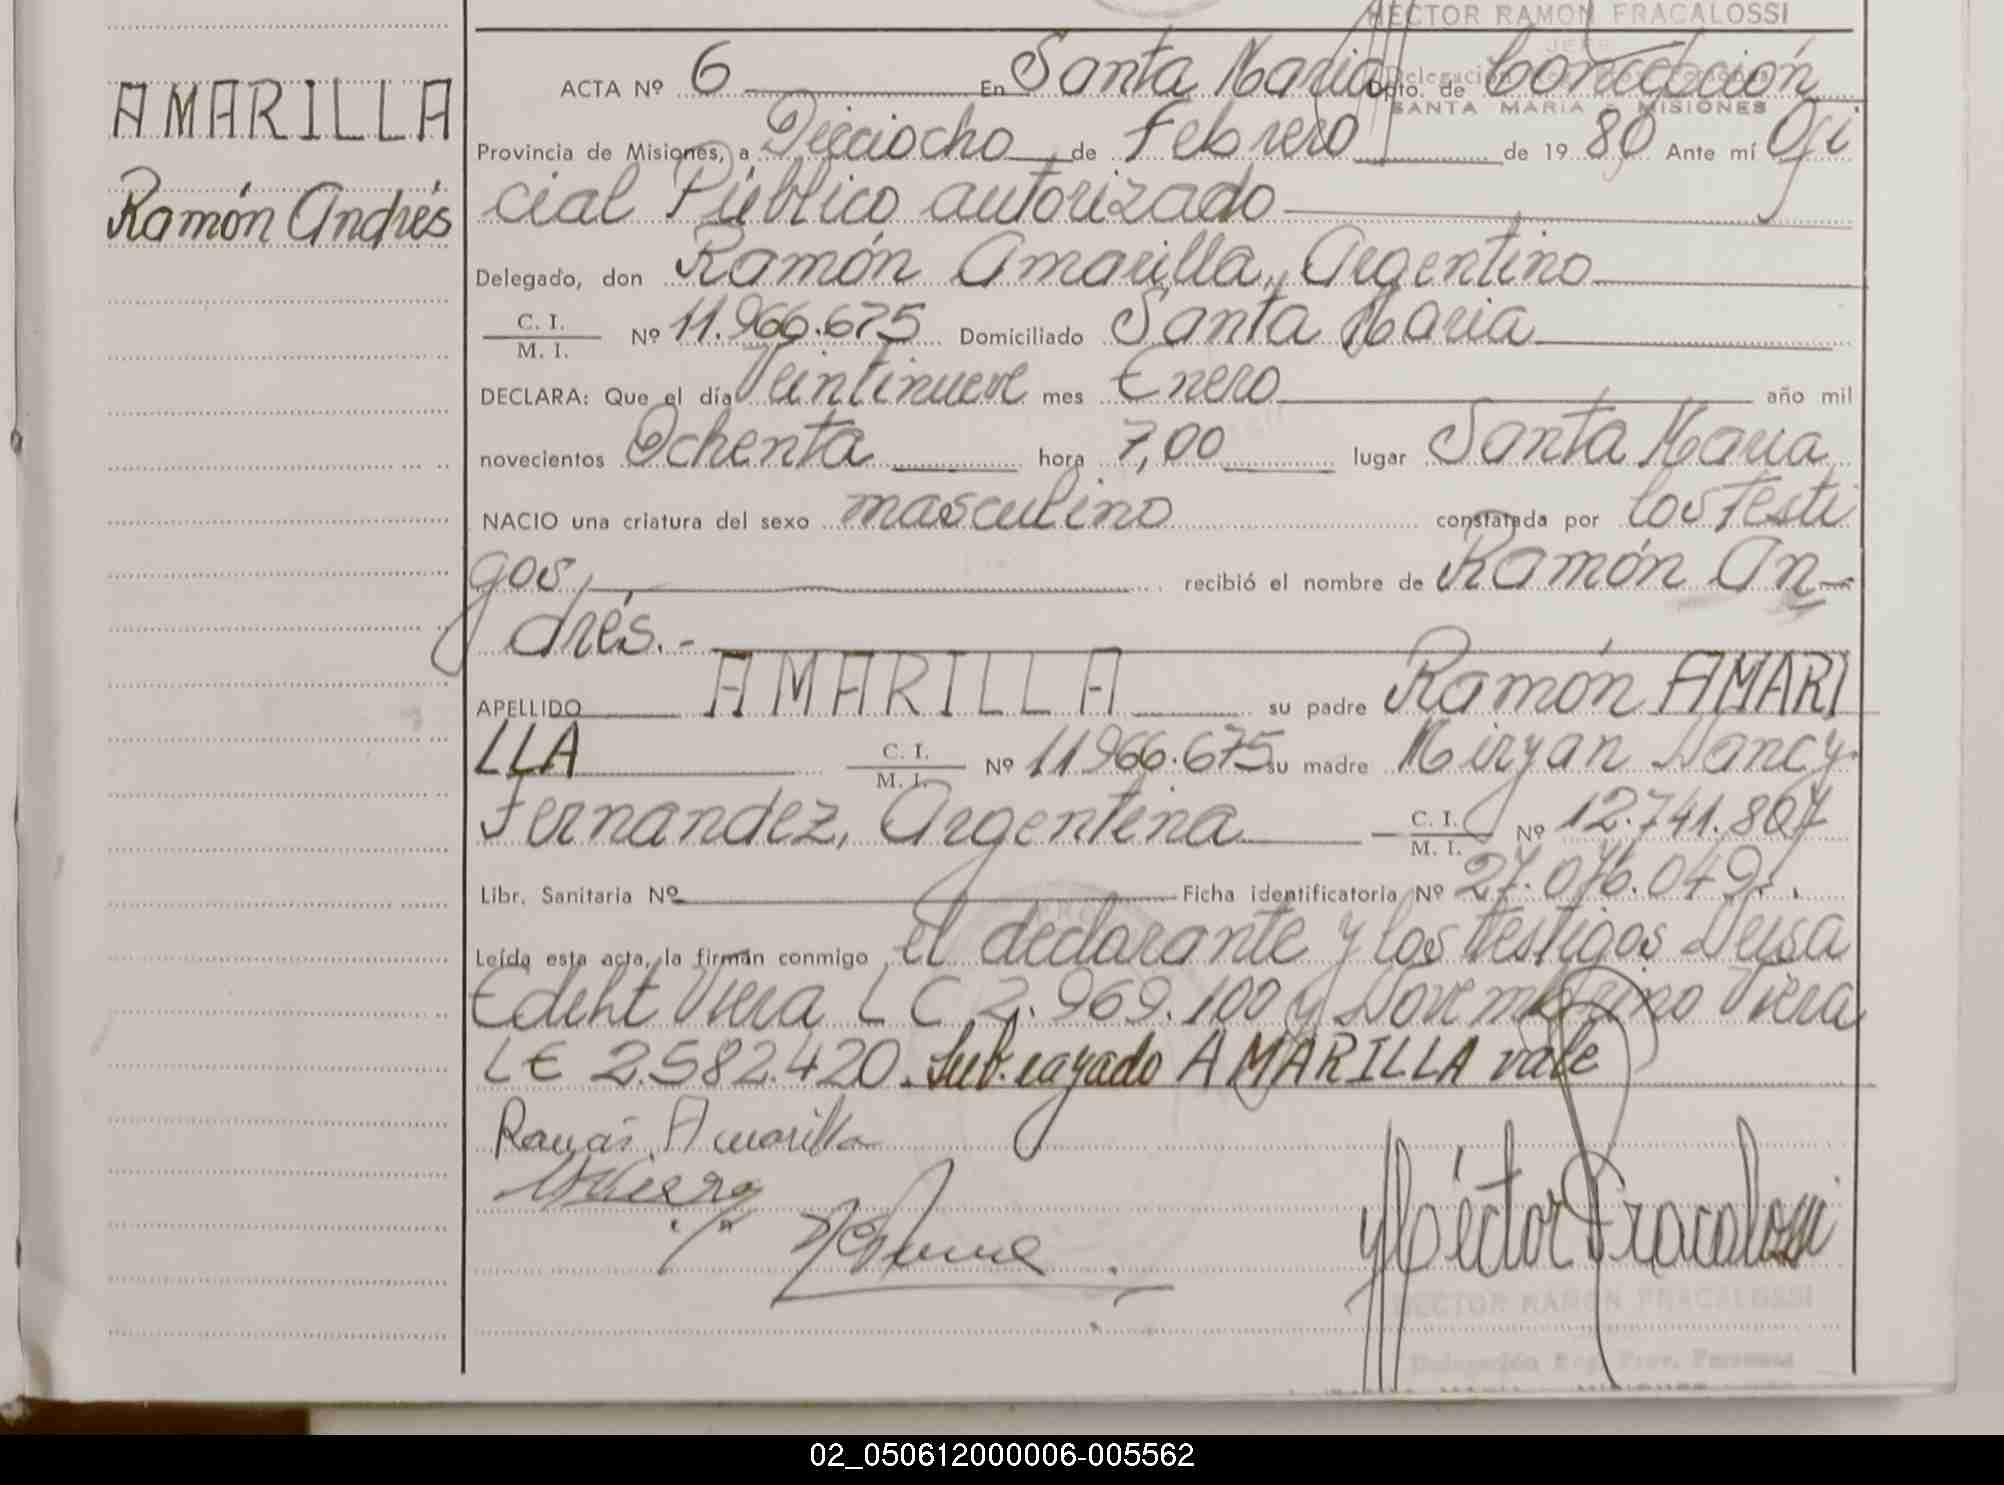 HECTOR RAMON FRACALOSSI
JEFE
AMARILLA
Ramón Andrés
ACTA Nº 6 En Santa Maria Dpto. de Concepción
SANTA MARIA - MISIONES
Provincia de Misiones, a Dieciocho de Febrero de 19 80 Ante mí Ofi
cial Público autorizado
Delegado, don Ramón Amarilla, Argentino
C. I.
M. I. Nº 11.966.675 Domiciliado Santa Maria
DECLARA: Que el día Veintinueve mes Enero año mil
novecientos Ochenta hora 7,00 lugar Santa Maria
NACIO una criatura del sexo masculino constatada por los Testi
gos, recibió el nombre de Ramón An-
drés.-
APELLIDO AMARILLA su padre Ramón AMARI
LLA C. I.
M. I. Nº 11.966.675 su madre Miryan Nancy
Fernandez, Argentina C. I.
M. I. Nº 12.741.807
Libr. Sanitaria Nº Ficha identificatoria Nº 27.076.049.
Leída esta acta, la firman conmigo el declarante y los testigos Neisa
Edeht Viera LC 2.969.100 y Viera
LE 2.582.420. Sub.rayado AMARILLA vale
Ramón Amarilla
Héctor Fracalossi
HECTOR RAMON FRACALOSSI
Delegación Reg. Prov. Personas
02_050612000006-005562